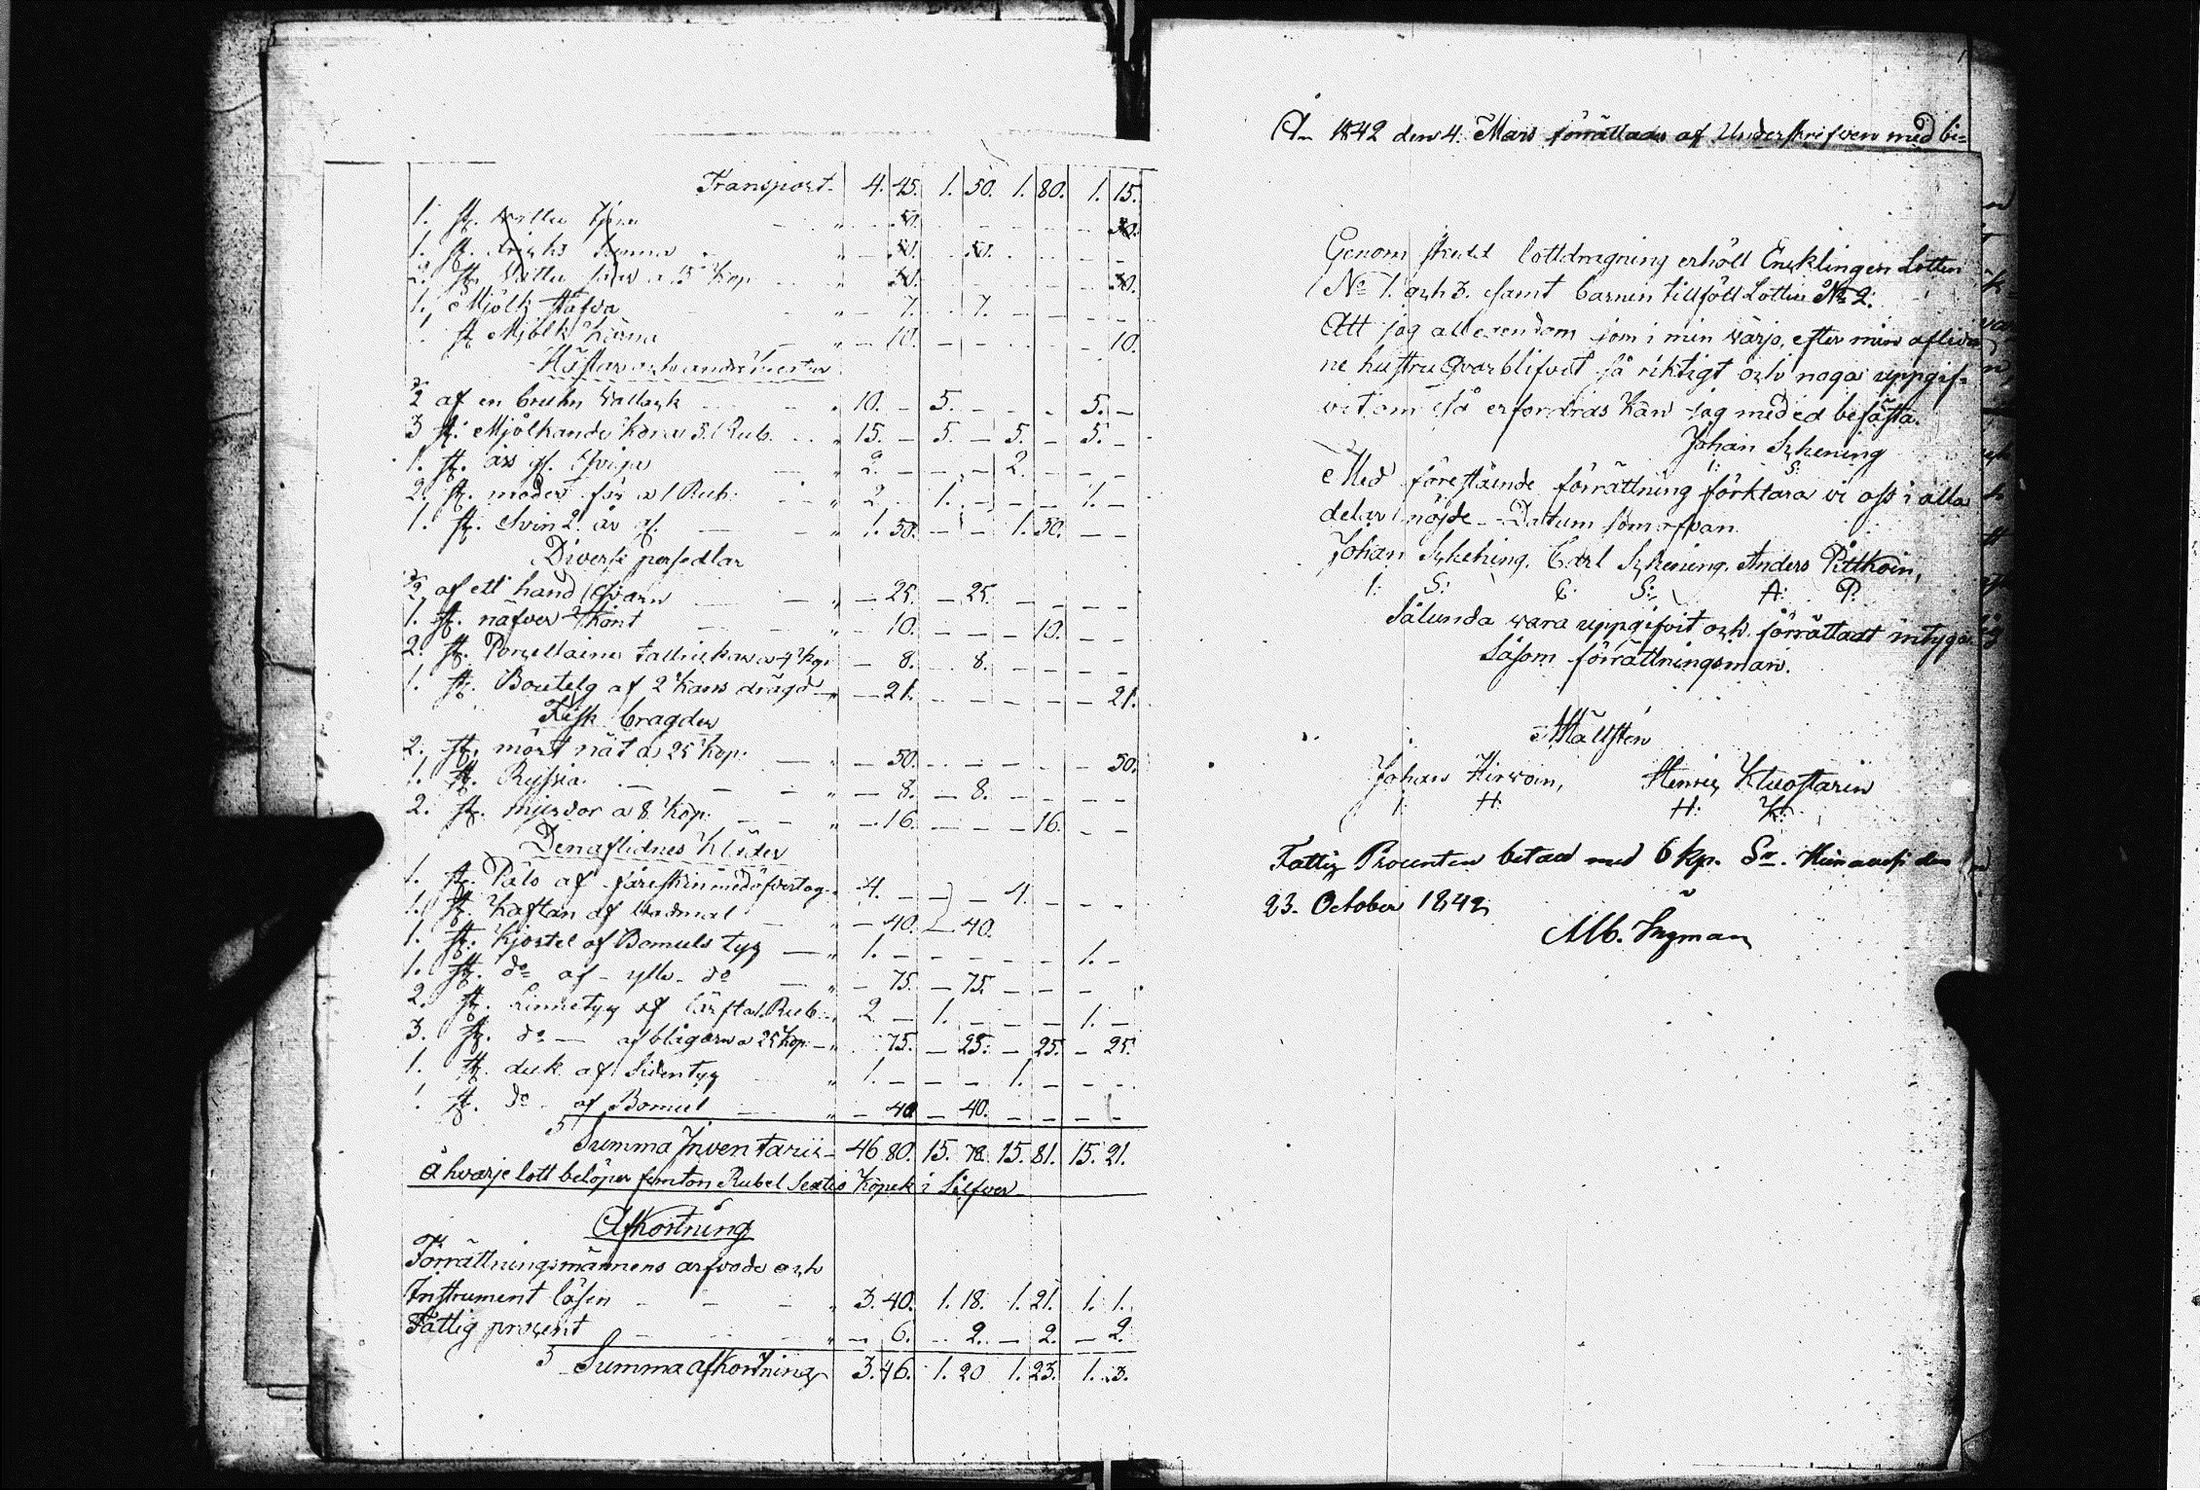 Transport. 4. 45. 1. 50. 1. 80. 1. 15.
1. st. 50. 50.
1. st. 50. 50.
2. st. a 15 Kop 30. 30.
1. Mjölkståfva " — 7. 7. — — — —
1. st Mjölk Kärna " — 10. — — — — 10.
Hästar och andre
1/2 af en bruhn Wallack " 10. — 5. — — — 5. —
3 st. Mjölkande Kor a 5. Rub. " 15. — 5. — 5. — 5. —
1. st. års gl. Qviga " 2. — — — 2. — — —
2. st. moder får a 1 Rub. " 2. 1. — — — 1. —
1. st. Svin 2. år gl. " 1. 50. — — 1. 50. — —
Diverse persedlar
1/2 af ett hand Qvarn " — 25. — 25. — — — —
1. st. näfver Kont " — 10. — — — 10. — —
2. st. Porcellaines tallrickar a 4 Kop — 8. 8. — — — —
1. st. Boutelg af 2 Kans drägd " — 21. — — — — — 21.
Fisk bragder
2. st. mört nät a 25 Kop. " — 50. — — — — — 50.
1. st. Ryssia " — 8. — 8. — — — —
2. st. mjerdor a 8 Kop. " — 16. — — — 16. — —
Den aflidnes Kläder
1. st. Päls af fåreskin med öfvertog " 4. — — — 4. — — —
1. st. Kaftan af Wadmal " — 40. — 40.
1. st. Kjortel af Bomuls tyg " 1. — — — — — 1. —
1. st. do af ylle do " — 75. — 75. — — —
2. st. Linnetyg af lärft a 1. Rub. " 2 — 1. — — — 1. —
3. st. do — af blågarn a 25 Kop. — " 75. — 25. — 25. — 25.
1. st. duk af Sidentyg " 1. — — — 1. — — —
1. st. do af Bomul " — 40 — 40. — — — —
S Summa Inventarii — 46 80. 15. 78. 15. 81. 15. 21.
å hvarje lott belöper femton Rubel Sextio Kopek i Silfver
Afkortning
Förrättningsmännens arfvode och
Instrument lösen — — — " 3. 40. 1. 18. 1. 21. 1. 1.
Fattig procent — — — " — 6. — 2. — 2. — 2.
S Summa afkortning 3. 46. 1. 20 1. 23. 1. 3.
År 1842 den 4. Mars förrättades af Underskrifven med bi=
Genom skedd lottdragning erhöll Encklingen Lotten
No 1. och 3. samt barnen tillföll Lotten No 2.
Att jag all egendom som i min wärjo, efter min aflid
ne hustru Qvarblifvit så riktigt och noga uppgif=
vit om så erfordras Kan jag med ed befästa.
Johan Sckening
I: S:
Med föreståënde förrättning förklara vi oss i alla
delar nöjde — Datum som ofvan.
Johan Sckening. Carl Sckening. Anders Pitkoin,
I: S: C: S: A: P:
Sålunda wara uppgifvit och förrättadt intyga
Såsom förrättningsman.
Mällstén
Johan Hirvoin, Henric Kluostarin
I: H: H: K:
Fattig Procenten betald med 6 Kp. Sr. den
23. October 1842
Alb. Ingman